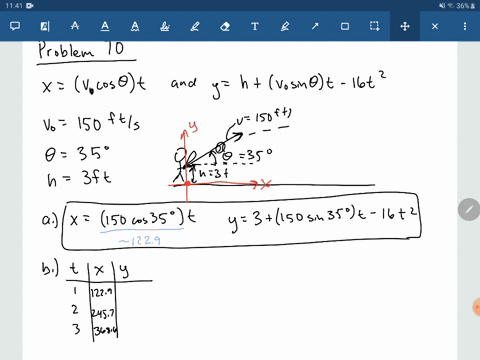 11:41
36%
Problem 10
x = (v₀cosθ)t and y = h + (v₀sinθ)t - 16t²
v₀ = 150 ft/s
θ = 35°
h = 3ft
y
v=150 ft/s
θ =35°
h=3ft
x
a.) x = (150 cos35°)t y = 3+(150 sin35°)t - 16t²
~122.9
b.) t x y
1 122.9
2 245.7
3 368.6